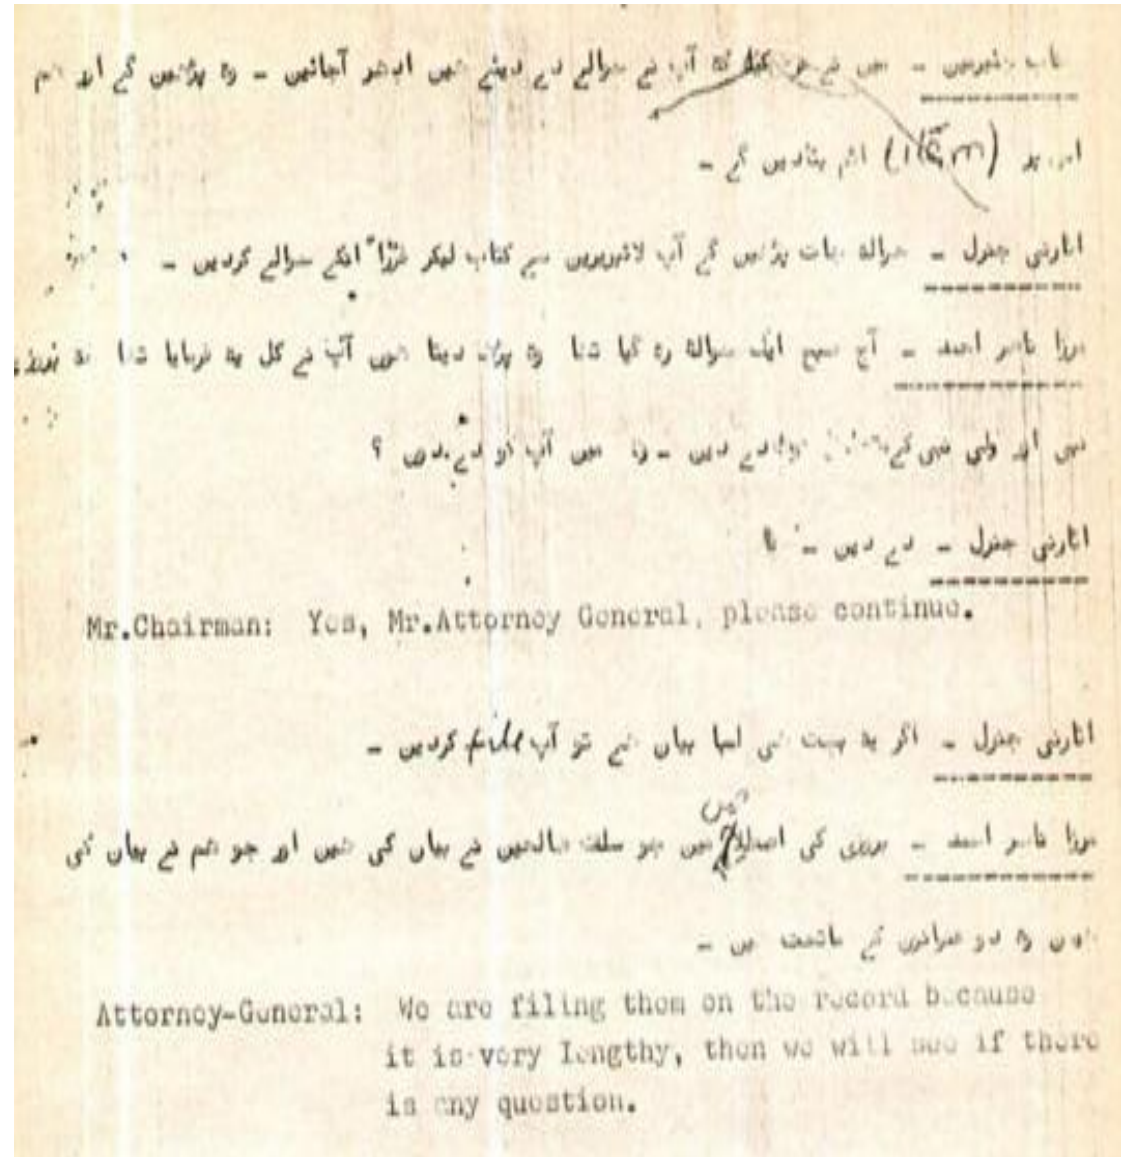 میں نے کہا کہ آپ نے حوالے دے دیئے ہیں ادھر آجائیں - وہ پڑھیں گے اور ہم
(item) ہم بتادیں گے -
اٹارنی جنرل - حوالہ جات پڑھیں گے آپ لائبریرین سے کتاب لیکر فوراً انکے حوالے کردیں -
مرزا ناصر احمد - آج صبح ایک حوالہ رہ گیا تھا وہ پڑھ دیتا ہوں آپ نے کل یہ فرمایا تھا کہ بروزی
نبی اور ظلی نبی کے دے دیں - وہ میں آپ کو دے دوں ؟
اٹارنی جنرل - دے دیں -
Mr.Chairman: Yes, Mr.Attorney General, please continue.
اٹارنی جنرل - اگر یہ بہت ہی لمبا بیان ہے تو آپ file کردیں -
مرزا ناصر احمد - بروزی کی اصطلاحیں جو سلف صالحین نے بیان کی ہیں اور جو ہم نے بیان کی
ہیں وہ دو عنوانوں کے ماتحت ہیں -
Attorney-General: We are filing them on the record because
it is very lengthy, then we will see if there
is any question.